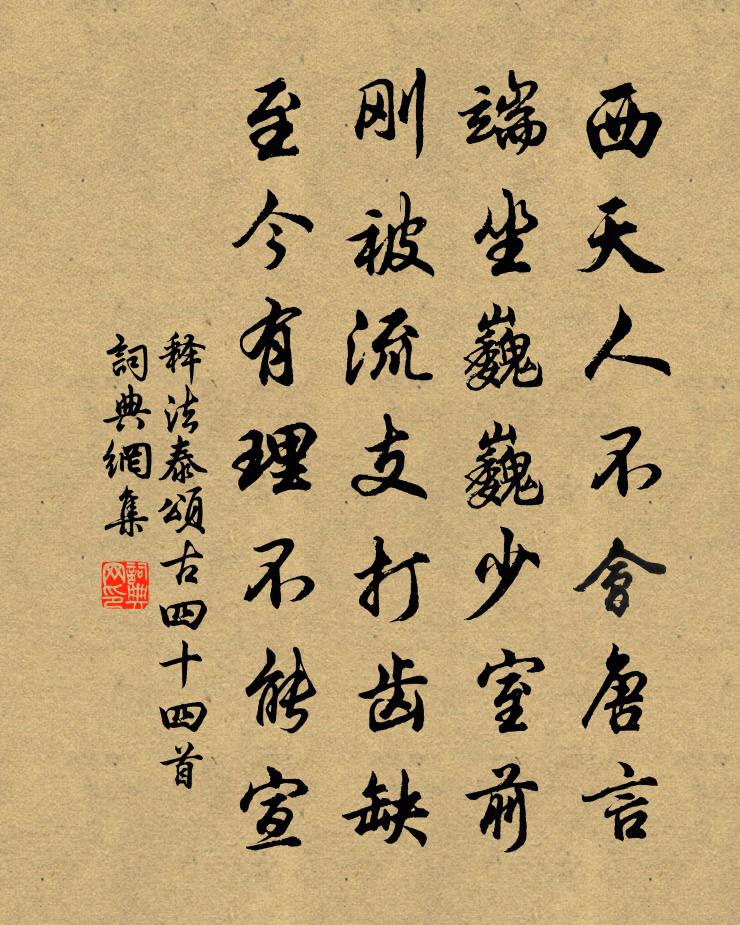 西天人不會唐言
端坐巍巍少室前
刚被流支打齿缺
至今有理不能宣
释法泰頌古四十四首
詞典網集
詞典网印